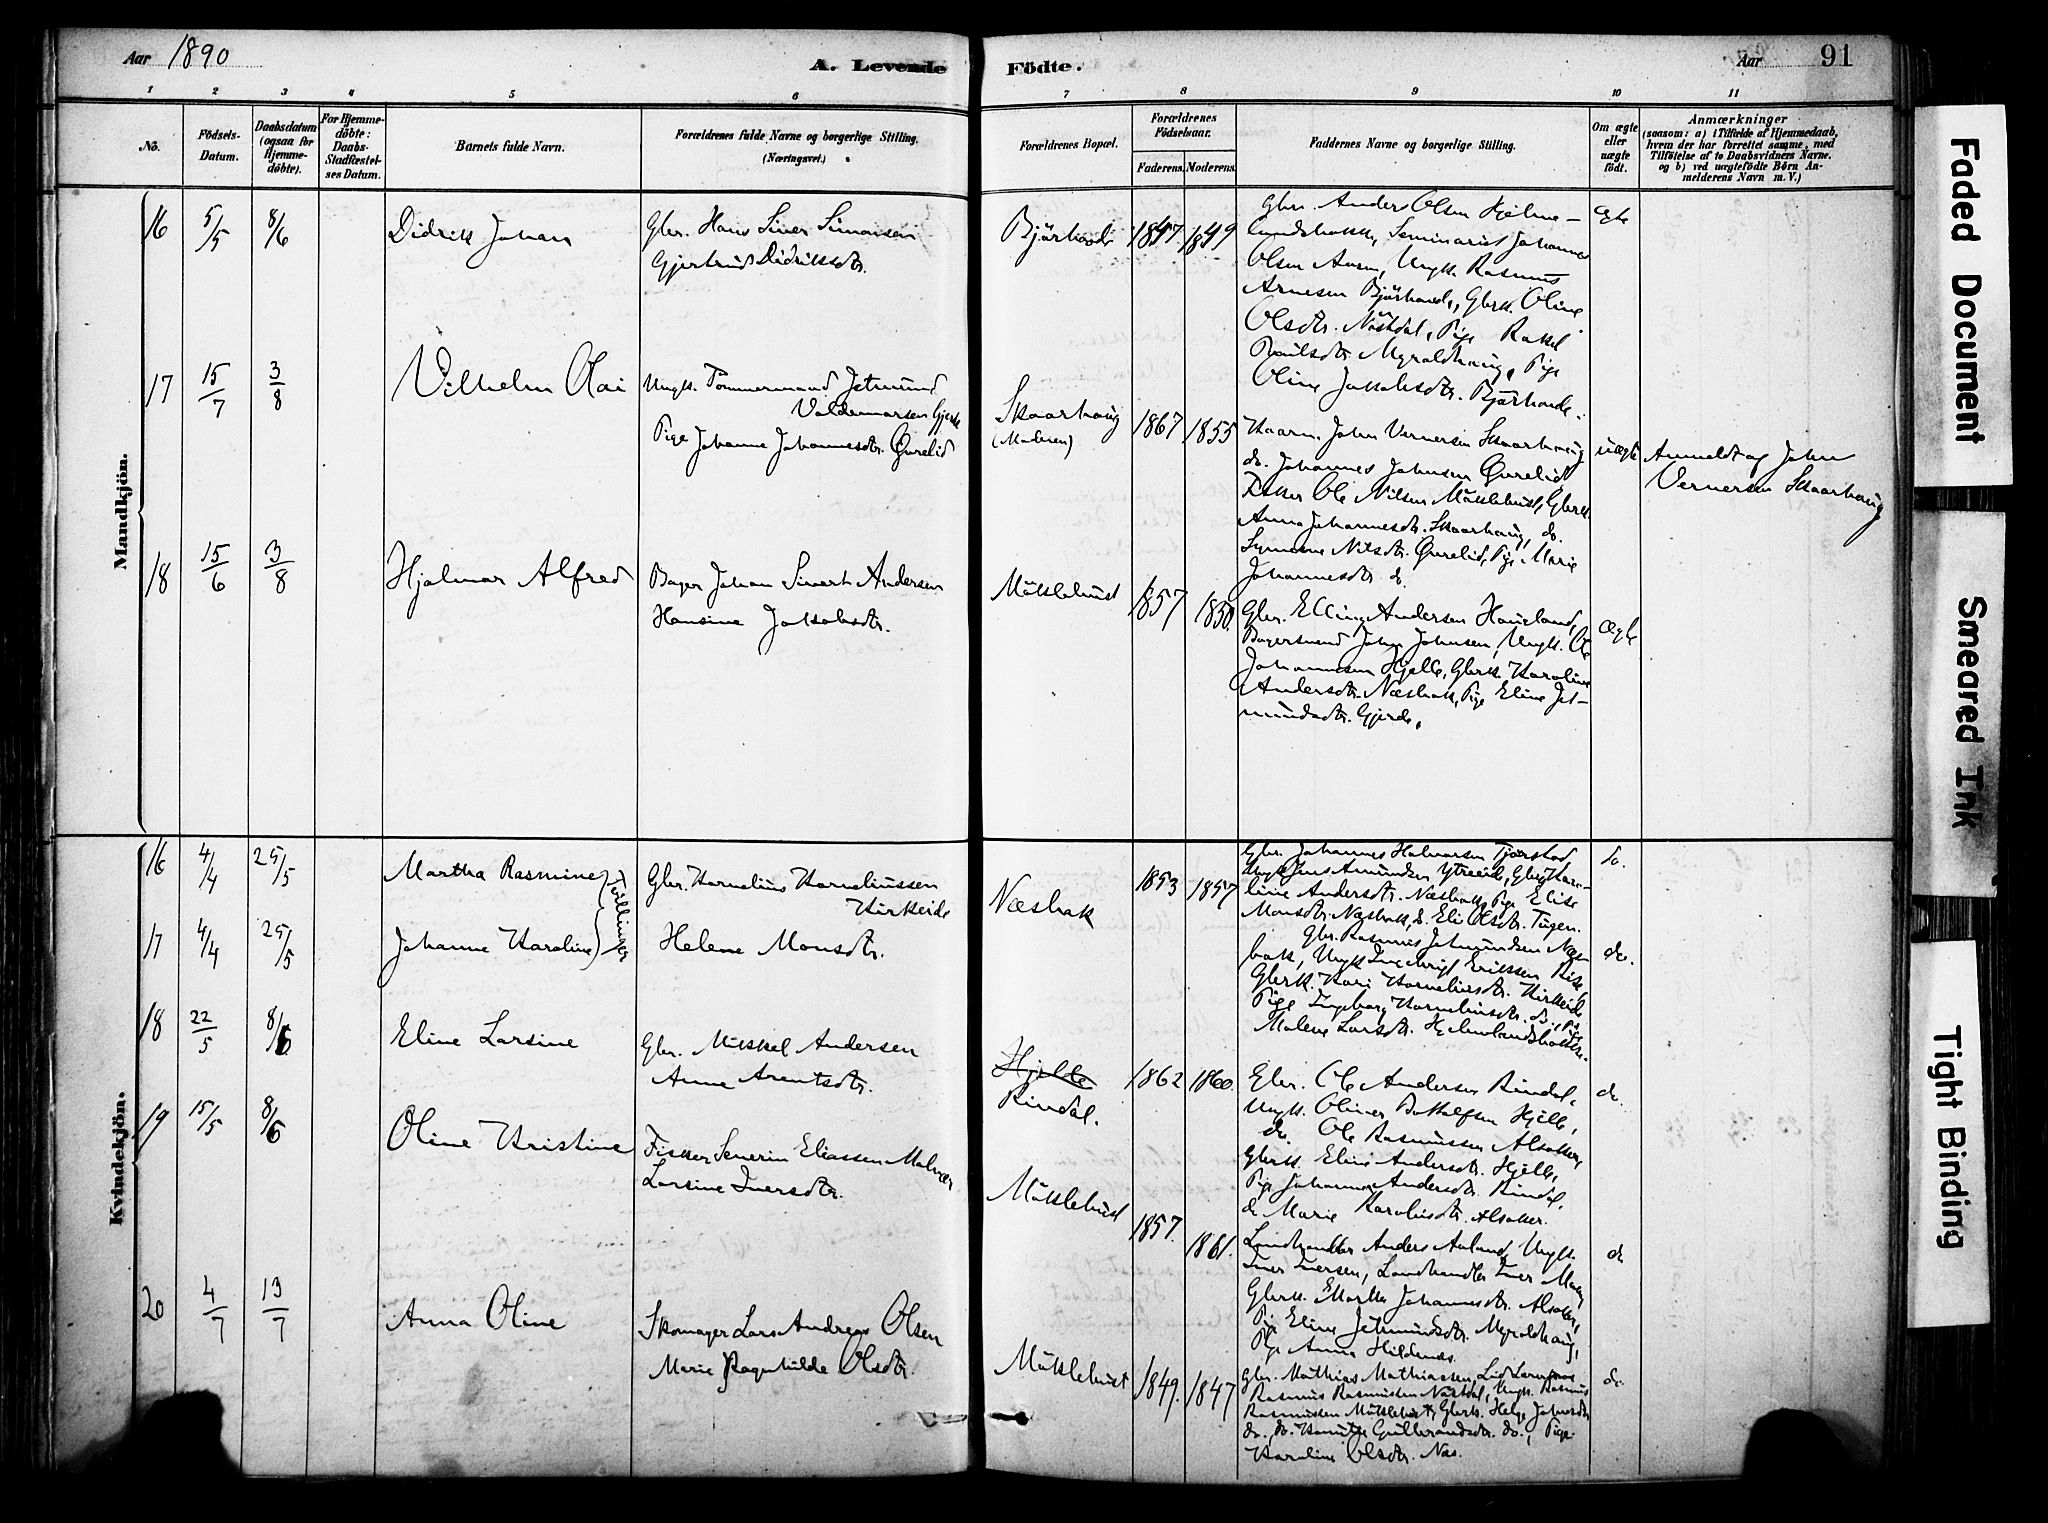 Aar 1890
A. Levende Födte.
Aar 91
1 2 3 4 5 6 7 8 9 10 11
No.
Födsels-Datum.
Daabsdatum (ogsaa for Hjemme-döbte).
For Hjemme-döbte: Daabs-Stadfæstel-ses Datum.
Barnets fulde Navn.
Forældrenes fulde Navne og borgerlige Stilling.
(Næringsvei.)
Forældrenes Bopæl.
Forældrenes Födselsaar.
Faderens. Moderens.
Faddernes Navne og borgerlige Stilling.
Om ægte eller uægte födt.
Anmærkninger
(saasom: a) i Tilfælde af Hjemmedaab,
hvem der har forrettet samme, med
Tilföielse af to Daabsvidners Navne,
og b) ved uægtefödte Börn An-
melderens Navn m. V.)
Mandkjön.
16 5/5 8/6 Didrik Johan
Gbr. Hans Siver Simonsen
Gjertrud Didriksdtr.
Björhovde 1847 1849
Gbr. Anders Olsen Hjelme-
landsbakk, Seminarist Johannes
Olsen Aasen, Ungk. Rasmus
Arnesen Björhovde, Gbrk. Oline
Olsdtr. Nöstdal, Pige Rakel
Poulsdtr. Myroldhaug, Pige
Oline Jakobsdtr. Björhovde.
ægte
17 15/7 3/8 Vilhelm Olai
Ungk. Tömmermand Jetmund
Valdemarsen Gjerde
Pige Johanne Johannesdtr. Övrelid
Skaarhaug
(Moderen)
1867 1855
Kaarm. John Vernersen Skaarhaug
do. Johannes Johnsen Övrelid
Fisker Ole Nilsen Mäklebust, Gbrk.
Anna Johannesdtr. Skaarhaug, do.
Synneve Nilsdtr. Övrelid, Pige Marie
Johannesdtr. do.
uægte
Anmeldt af John
Vernersen Skaarhaug
18 15/6 3/8 Hjalmar Alfred
Bager Johan Sivert Andersen
Hansine Jakobsdtr.
Mäklebust 1857 1850.
Gbr. Elling Andersen Haugland,
Bagersvend John Johnsen, Ungk. Ole
Johannesen Hjelle, Gbrk. Karoline
Andersdtr. Næsbak, Pige Eline Jet-
mundsdtr. Gjerde.
Ægte
Kvindekjön.
16 4/4 25/5 Martha Rasmine
17 4/4 25/5 Johanne Karoline
Tvillinger
Gbr. Kornelius Korneliussen
Kirkeide
Helene Monsdtr.
Næsbak 1853 1857
Gbr. Johannes Halvorsen Tjörstad
Ungk. Jens Amundsen Ytreeide, Gbrk. Karo-
line Andersdtr. Næsbak, Pige Elise
Monsdtr. Næsbak, do. Eli Olsdtr. Tugen.
do.
Gbr. Rasmus Jetmundsen Næs-
bak, Ungk. Ingebrigt Eriksen
Gbrk. Kari Korneliusdtr. Kirkeide
Pige Ingeborg Korneliusdtr. do., Pige
Malene Larsdtr. Hjelmelandsbakk.
do.
18 22/5 8/6 Eline Larsine
Gbr. Mikkel Andersen
Anne Arentsdtr.
Hjelle
Rindal.
1862 1860.
Gbr. Ole Andersen Rindal,
Ungk. Oliver Botolfsen Hjelle,
do. Ole Rasmussen Alsaker,
Gbrk. Eline Andersdtr. Hjelle,
Pige Johanna Andersdtr. Rindal,
do Marie Karolusdtr. Alsaker.
do.
19 15/5 8/6 Oline Kristine
Fisker Severin Eliassen Malvær
Larsine Iversdtr.
Mäklebust 1857. 1861.
Landhandler Anders Aaland, Ungk.
Iver Iversen, Landhandler Iver
Gbrk. Marthe Johannesdtr. Alsaker,
Pige Eline Jetmundsdtr. Myroldhaug,
Pige Anna Hildenes.
do
20 4/7 13/7 Anna Oline
Skomager Lars Andreas Olsen
Marie Ragnhilde Olsdtr.
Mäklebust 1849. 1847
Gbr. Mathias Mathiassen,
Rasmus Rasmussen Nöstdal, Ungk. Rasmus
Rasmussen Mäklebust, Gbrk. Helge Johnsdtr.
do., do. Gulbrandsdtr. do., Pige
Karoline Olsdtr. Næs.
do.
Faded Document
Smeared Ink
Tight Binding